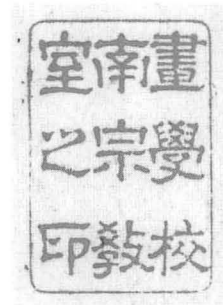 畫學校
南宗教
室之印